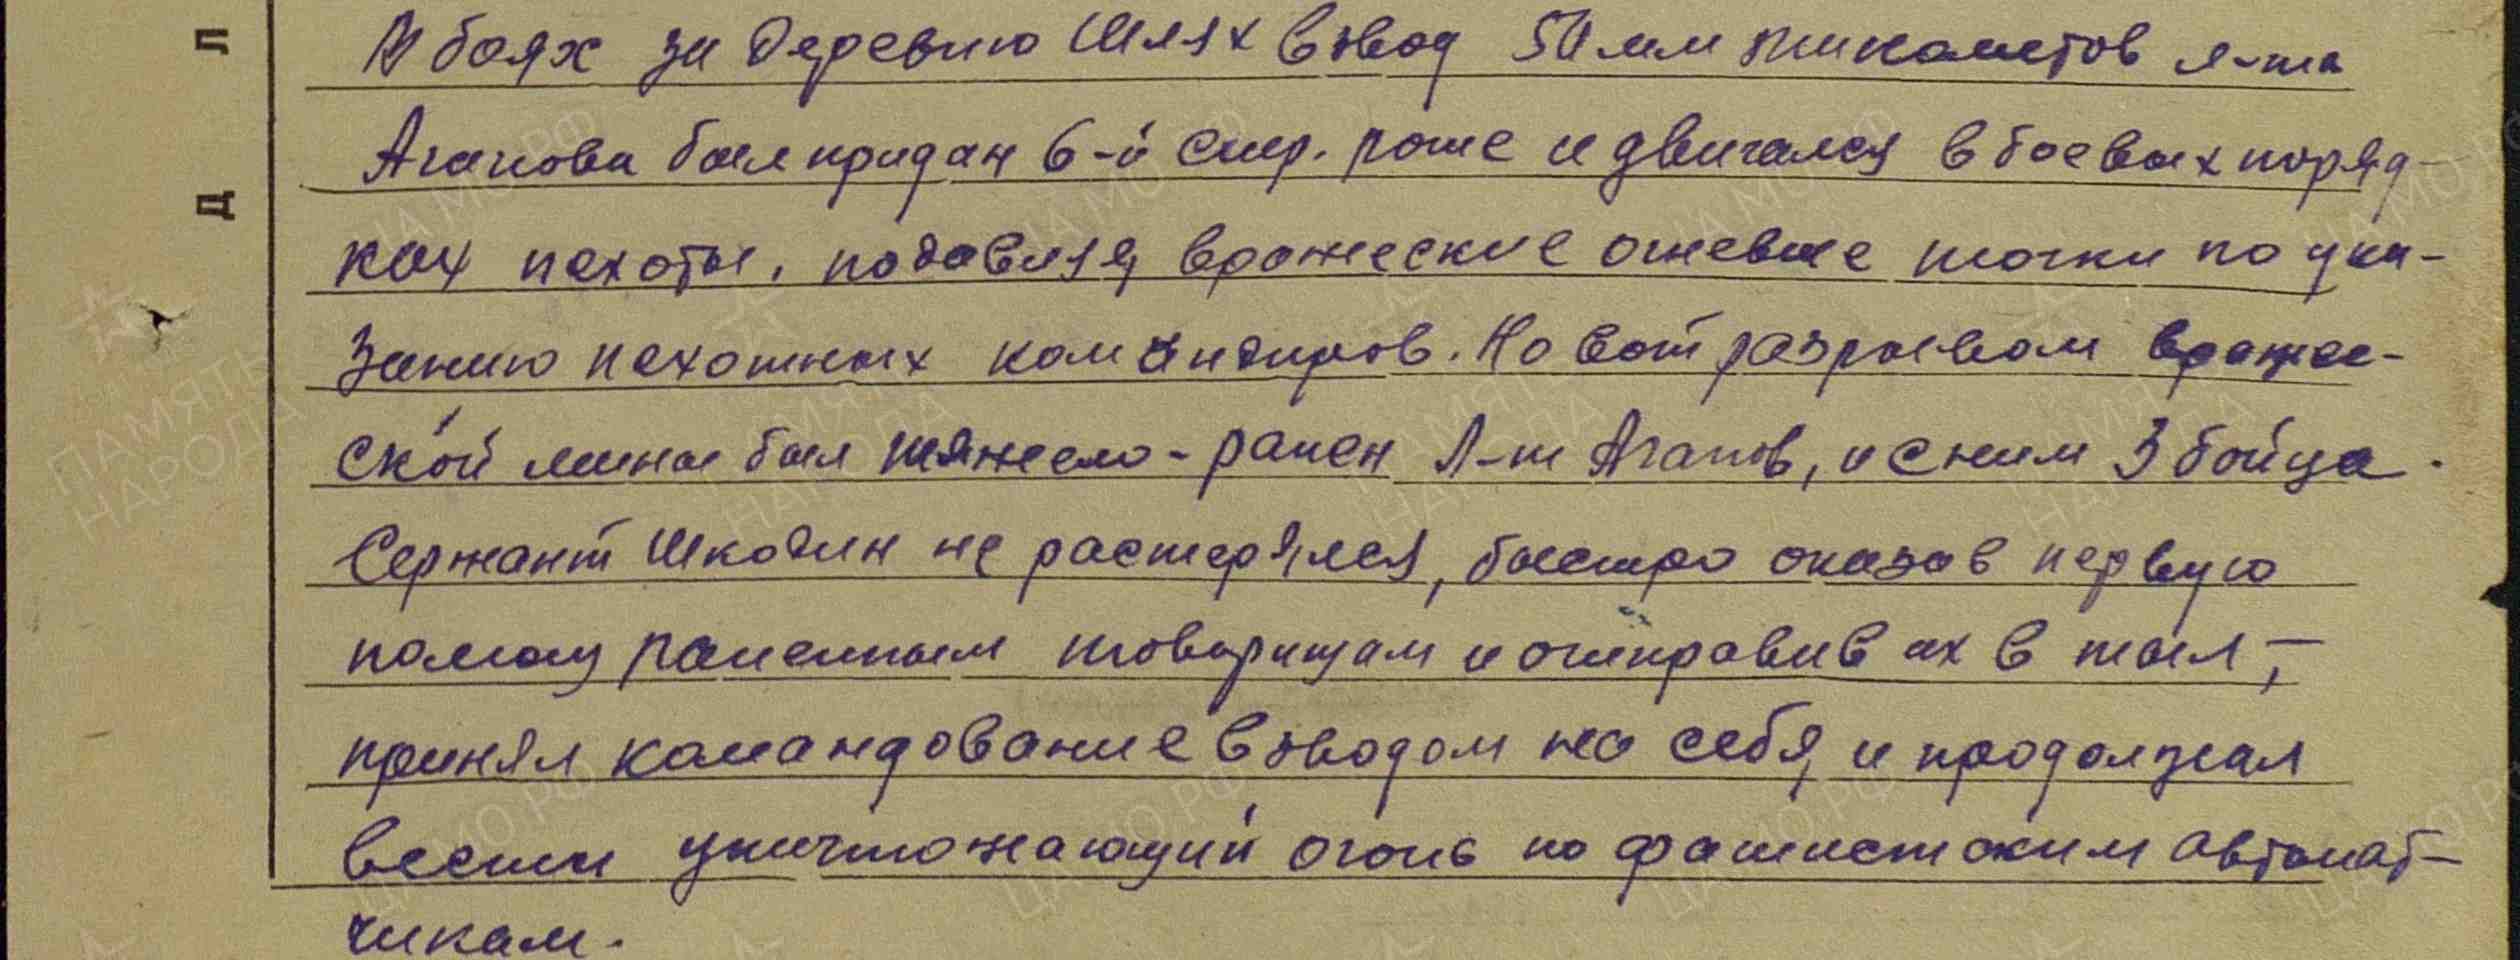 В боях за деревню Шлях взвод 50 мм минометов л-та
Агапова был придан 6-й стр. роте и двигался в боевых поряд-
ках пехоты, подавляя вражеские огневые точки по ука-
занию пехотных командиров. Но вот разрывом вражес-
ской мины был тяжело-ранен Л-т Агапов, и с ним 3 бойца.
Сержант Шкодин не растерялся, быстро оказав первую
помощь раненным товарищам и отправив их в тыл,-
принял командование взводом на себя и продолжал
вести уничтожающий огонь по фашистским автомат-
чикам.
Л
Д
ПАМЯТЬ НАРОДА
ЦА МО РФ